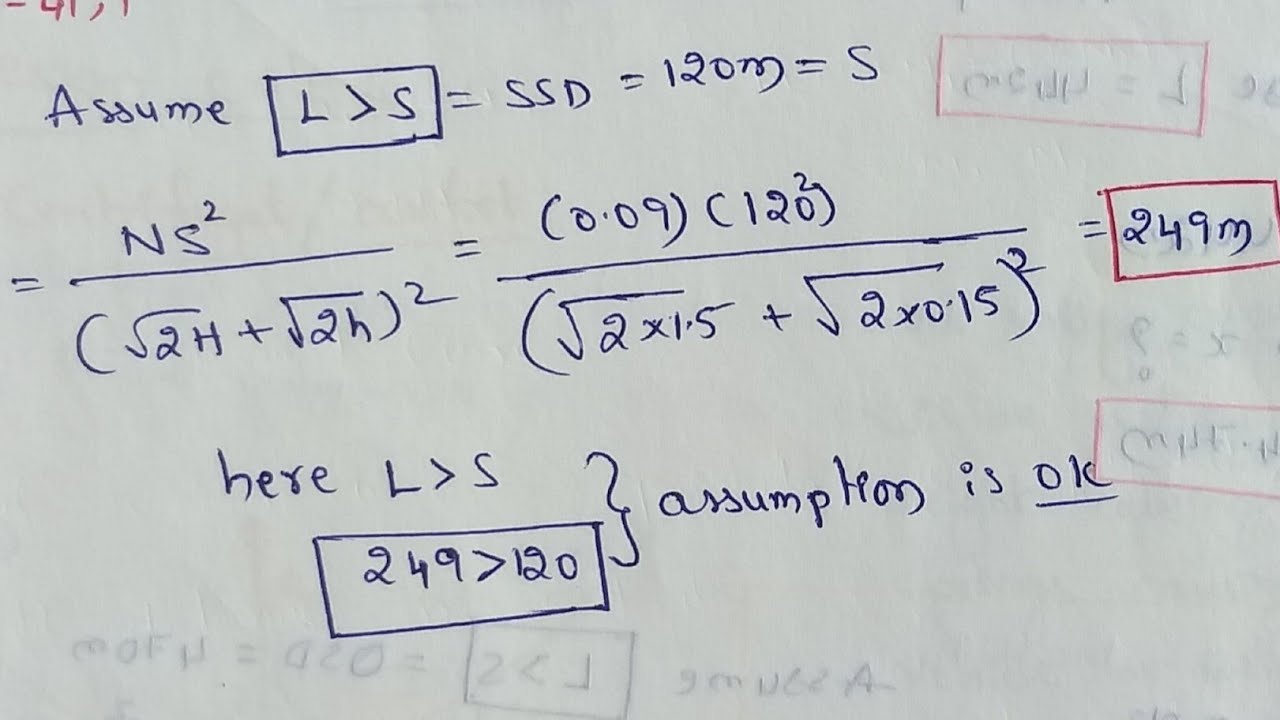 Assume L > S = SSD = 120m = S
= NS² / (√2H + √2h)² = (0.09) (120²) / (√2×1.5 + √2×0.15)² = 249m
here L > S } assumption is OK
249 > 120